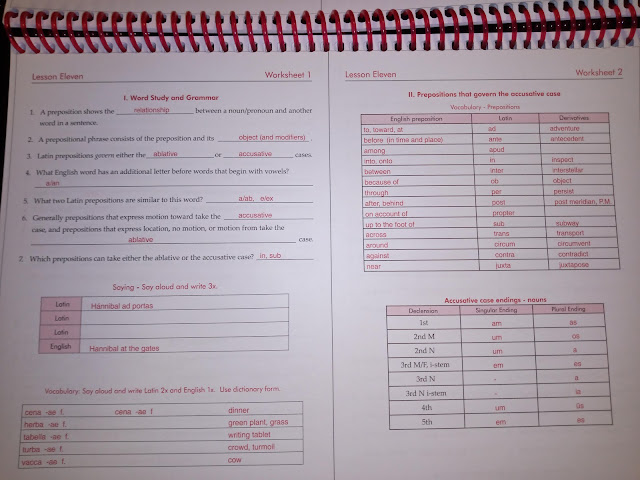 Lesson Eleven Worksheet 1
I. Word Study and Grammar
1. A preposition shows the relationship between a noun/pronoun and another
word in a sentence.
2. A prepositional phrase consists of the preposition and its object (and modifiers).
3. Latin prepositions govern either the ablative or accusative cases.
4. What English word has an additional letter before words that begin with vowels?
a/an
5. What two Latin prepositions are similar to this word? a/ab, e/ex
6. Generally prepositions that express motion toward take the accusative
case, and prepositions that express location, no motion, or motion from take the
ablative case.
7. Which prepositions can take either the ablative or the accusative case? in, sub
Saying - Say aloud and write 3x.
Latin Hánnibal ad portas
Latin
Latin
English Hannibal at the gates
Vocabulary: Say aloud and write Latin 2x and English 1x. Use dictionary form.
cena -ae f. cena -ae f. dinner
herba -ae f. green plant, grass
tabella -ae f. writing tablet
turba -ae f. crowd, turmoil
vacca -ae f. cow
Lesson Eleven Worksheet 2
II. Prepositions that govern the accusative case
Vocabulary - Prepositions
English preposition Latin Derivatives
to, toward, at ad adventure
before (in time and place) ante antecedent
among apud
into, onto in inspect
between inter interstellar
because of ob object
through per persist
after, behind post post meridian, P.M.
on account of propter
up to the foot of sub subway
across trans transport
around circum circumvent
against contra contradict
near juxta juxtapose
Accusative case endings - nouns
Declension Singular Ending Plural Ending
1st am as
2nd M um os
2nd N um a
3rd M/F, i-stem em es
3rd N - a
3rd N i-stem - ia
4th um ūs
5th em es